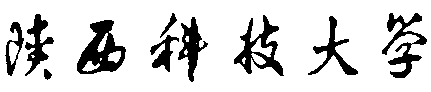 陕西科技大学